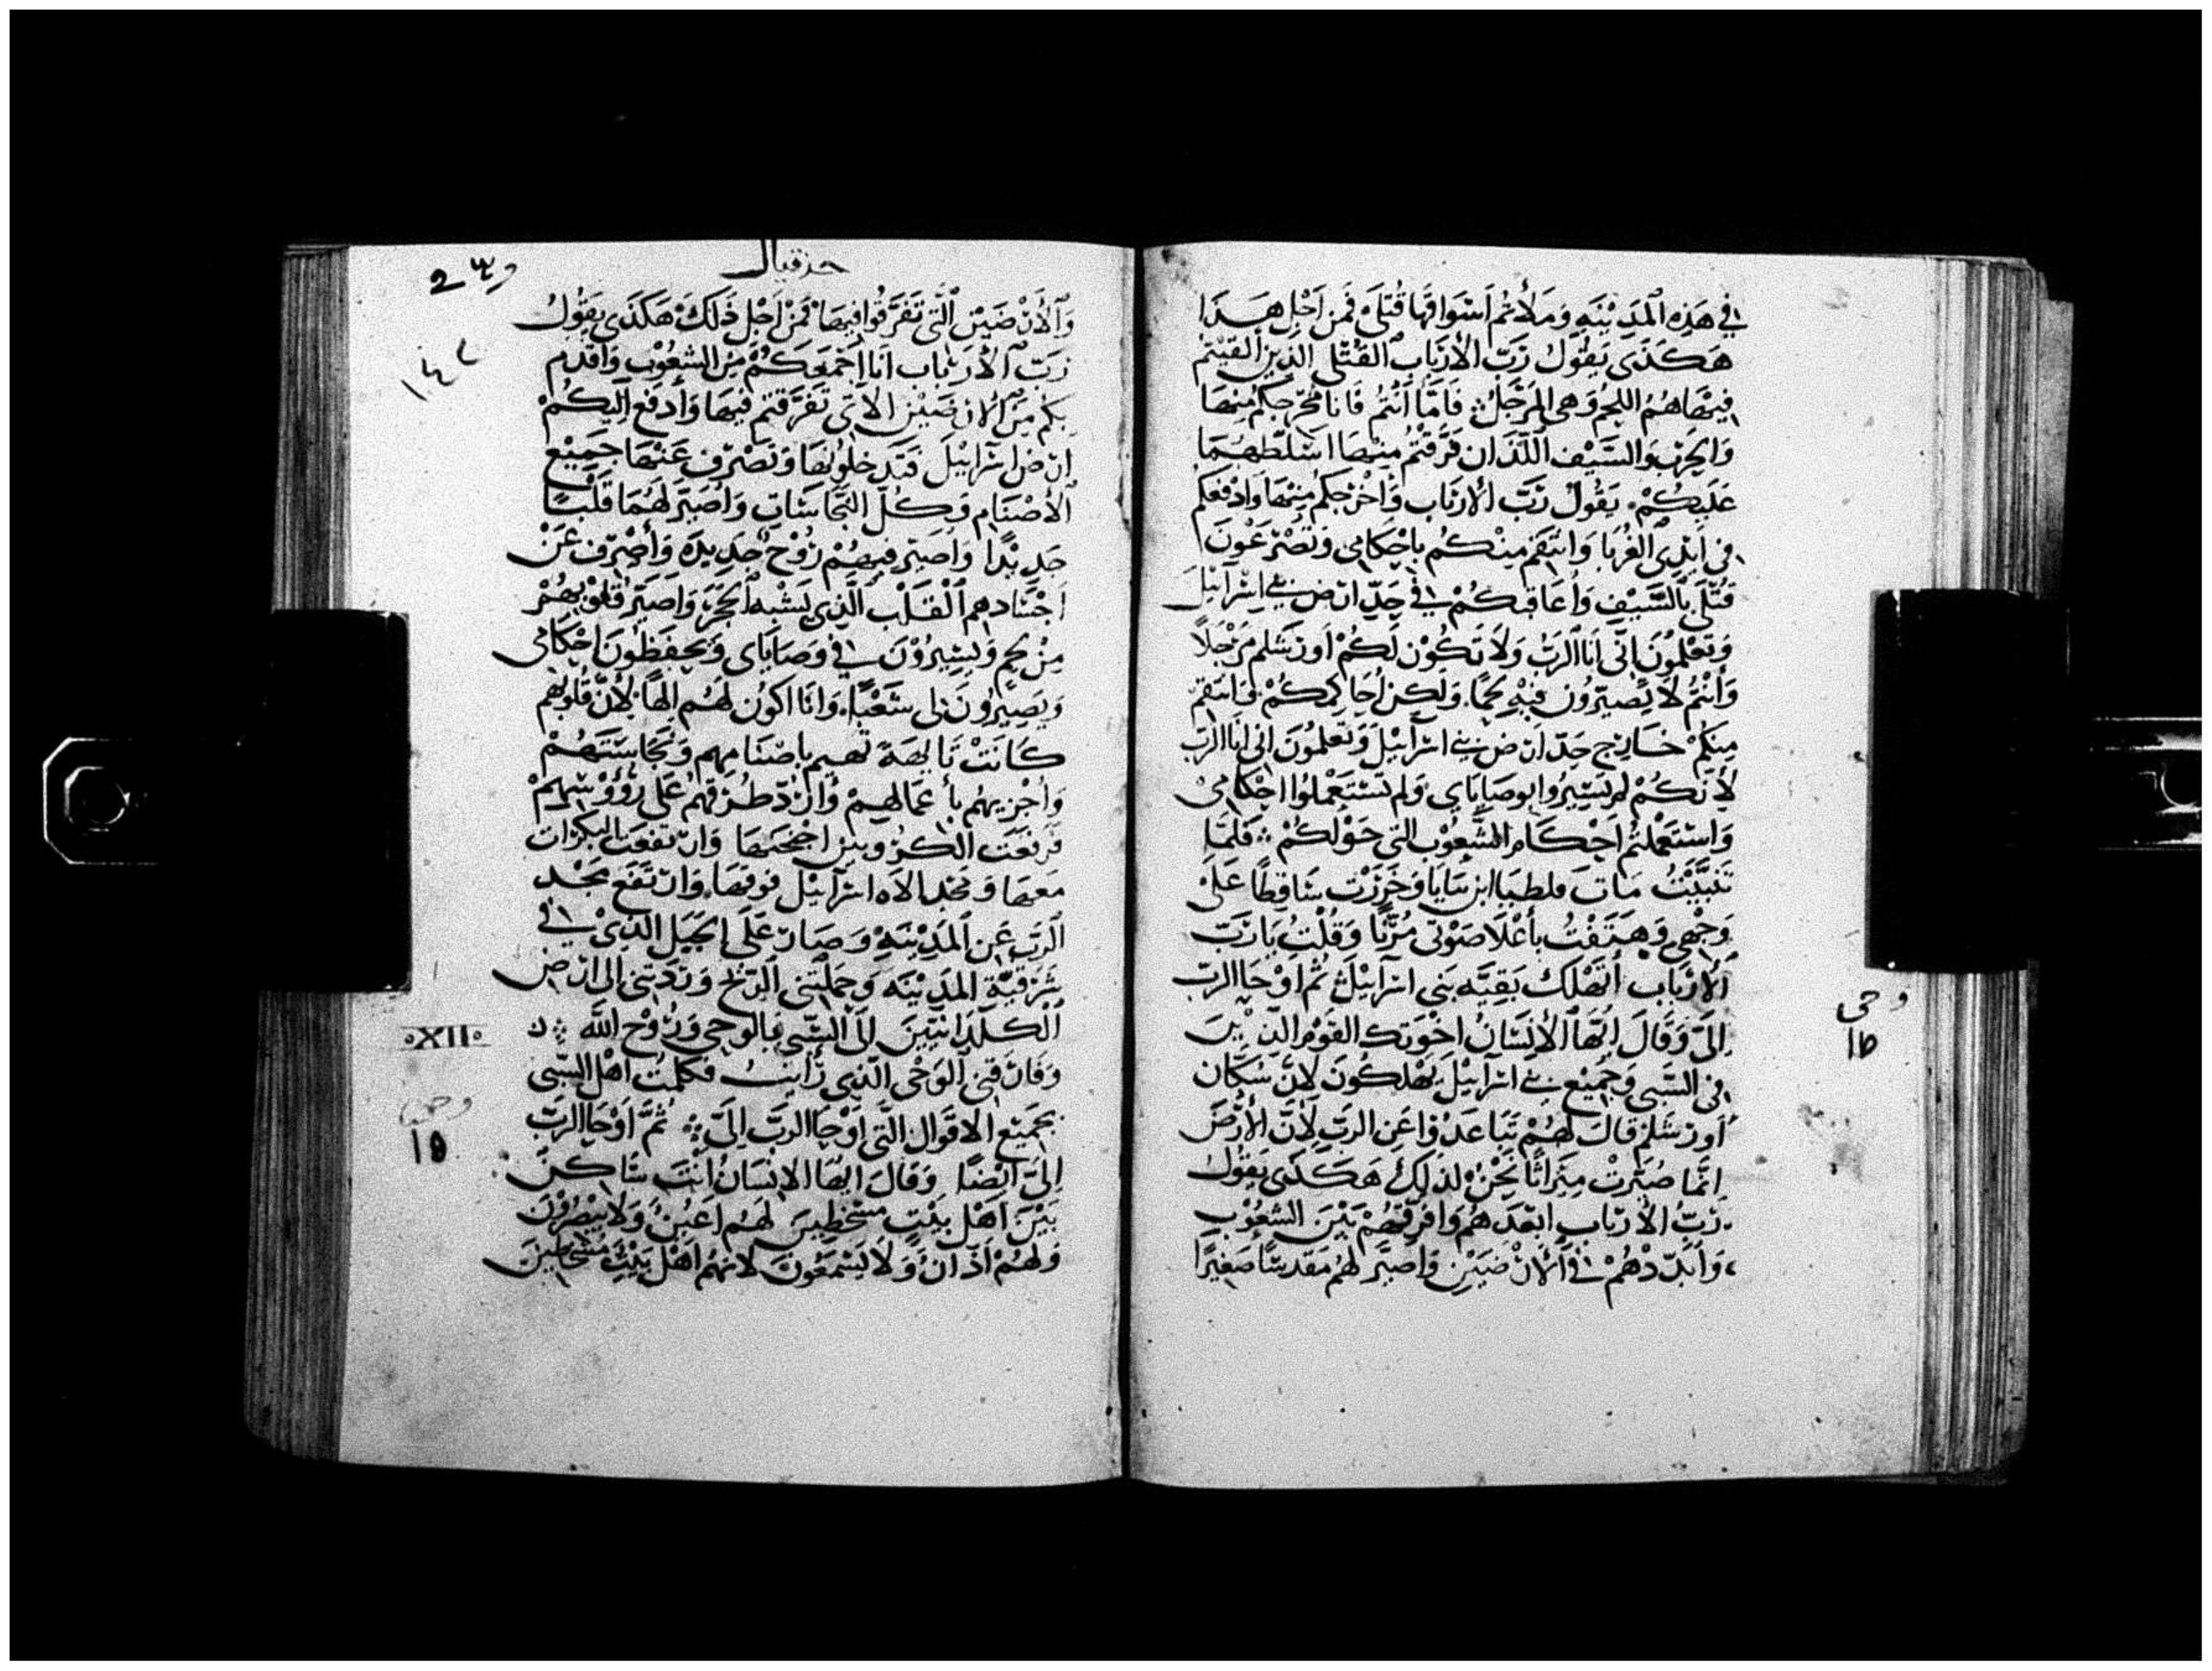 في هَذِه اَلمدِيْنَهِ وَمَلأتُم اَسْوَاقَهَا قُتلَى فَمِن اَجْلِ هَذا
هَكَذَى يَقُوْل رَبّ الاَرْبَابِ اَلقَتْلَى الذِين القَيْتمْ
فيْهَا هُمُ اللَحم وَهي المِرْجَلُ ۞ فَامّا اَنْتُم فَانَا مُخْرِجكُم مِنهَا
وَالحَرْبَ وَالسَّيْف اَللّذان فَرَقْتُم مِنْهمَا اسَلّطهُمَا
عَلَيكُمْ. يَقُولْ رَبّ الاَرْبَاب وَاُخْرِجكُم مِنهَا وَادْفَعكُم
في اَيْدِي الغُرَبَا وَانْتَقِم مِنْكُم بِاحْكَامي وَتُصْرَعُونَ
قَتْلَى بِالسَّيْفِ وَأُعَاقبكُمْ في حَدّ ارْض بَني اِسْرَآئِيْلَ
وَتعْلمُونَ اَنّى اَنَا الرَبّ وَلاَ تَكُوْن لَكُمْ اُورْشَلم مِرْجَلاً
وَأَنْتُمْ لاَ تَصِيْرُون فيْهِ لحمًا. وَلكِن احَاكِمكُمْ وَانْتَقم
مِنكُمْ خَارِج حَدّ ارْض بَني اسْرَآئيْل وَتَعْلمُوْنَ اني اَنَا الرَبّ
لأَنّكُمْ لَم تَسِيْرُوا بِوصَايَاي وَلم تسْتَعْملُوا احْكَامِىْ
وَاسْتَعْملتُم اَحْكَام الشّعُوْب التي حَوْلَكُمْ ۞ فَلمّا
تَنبّيْتُ مَاتَ فلطيَا ابن بنايَا وَخَرَرْت سَاقِطًا عَلَى
وَجْهي وَهَتَفْتُ بأَعْلاَ صَوْتى مُرًّا وَقُلْتُ يَا رَبّ
اَلأرْبَاب أَتَهْلك بَقِيَّه بَنى اسْرَآئيْلَ ثُم اوْحَا الرَبّ
اِلَىّ وَقَالَ اَيّهَا اَلاِنْسَانُ اخْوَتك القَوْم الذِيْنَ
في السَّبي وَجَمِيْع بَني اسرَآئيْل يَهْلكُونَ لاَنَّ سُكَّان
أورْشَلم قَالَ لهُمْ تَبَاعَدُوْا عَن الرَبّ لأَنّ الأَرْضَ
انَّمَا صُيّرَتْ مِيْرَاثًا نَحْنُ لِذلِكَ هَكَذَى يَقُوْلُ
رَبّ الاَرْبَاب ابْعَدَهُم وَافَرّقهُمْ بَيْنَ الشعُوْب
وَأبَدّدهُمْ في اَلأرْضيْن وَاصيّر لهُم مَقْدسًا صَغيْرًا
وحى
١٥
حزقيال
٢٣٢
١٤٢
وَاَلأَرْضيْن اَلَّتِى تَفَرَّقُوا فِيهَا فَمِنْ اَجْلِ ذَلكَ هَكذَى يَقُوْل
رَبّ اَلأرْبَاب اَنَا اَجْمَعكُمْ مِنَ الشعُوْب وَاقدم
بكُم مِنَ اَلارْضيْن الاتي تَفَرّقتم فيْهَا وَأَدفَع اليكُمْ
ارْض اسْرَآئيْلَ فَتدخلُوْنَهَا وَنَصْرف عَنْهَا جَميْع
اَلأَصْنَام وَكُلّ النّجَاسَات وَاُصَيّر لَهُمَا قَلْبًا
جَدِيْدًا وَاُصَيّر فيهُمْ رُوْحْ جَدِيدَه وَأَصْرف عَنْ
اَجْسَادهم اَلْقَلْب الّذِي يَشْبه الحَجَر وَاصَيّر قلُوْبهُمْ
مِنْ لحم وَيَسِيْرُوْن في وَصَايَاي وَيحفَظُوْن احْكَامي
وَيصِيرُونَ لي شَعْبًا. وَانَا اكوُن لهُم الهًا. لأَنّ قُلوْبَهم
كَانَتْ تَايهَة تهيم باصْنَامهم وَنَجَاسَتهُمْ
وَأجْزيهُم بأعْمَالهمْ وَارُدّ طُرقهمْ عَلَى رُؤُوْسَهمْ
فَرفعَت الكُرُوبيْن اجْنحَتهَا وَارْتفعَت البكرات
مَعهَا وَمَجْد الاَه اسْرآئيْل فوقهَا. وَارْتَفَع مَجْد
الرَبّ عَنِ المَدِيْنَهِ وَصَار عَلَى الجبَل الذِىْ في
شَرْقيّة المَدِيْنَه وَحمَلتني الرّيْح وَرَدّتني الى ارْض
اَلكلدَانيّيْنَ الى السّبي بالوَحي وَرُوْح الله ۞
وَفَارَقني الوَحْي الّذي رأيتُ فكلمْت اهْل السّبى
بجَميْع الاقوَال التّي اوْحَا الرَبّ اِلَىّ ۞ ثُمَّ اَوْحَا الرَبّ
اِلىّ ايْضًا وَقَالَ ايّهَا الاِنْسَانُ انْتَ سَاكنْ
بَيْنَ اَهْل بيْتٍ مسْخطِيْنَ لهُم اَعيُنْ وَلاَ يبْصُرُوْنَ
وَلهُمْ اَذَانْ وَلاَ يَسْمَعُونَ لاَنّهُم اَهْل بَيْتٍ مسْخطيْنَ
XII
وحى
١٥